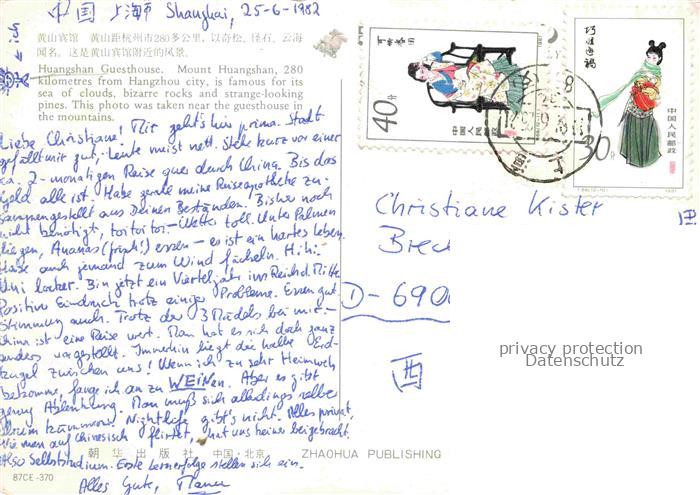 中国 上海市 Shanghai, 25-6-1982
黄山宾馆 黄山距杭州市280多公里，以奇松、怪石、云海
闻名。这是黄山宾馆附近的风景。
Huangshan Guesthouse. Mount Huangshan, 280
kilometres from Hangzhou city, is famous for its
sea of clouds, bizarre rocks and strange-looking
pines. This photo was taken near the guesthouse in
the mountains.
Liebe Christiane! Mir geht's hier prima. Stadt
gefällt mir gut, Leute meist nett. Stehe kurz vor einer
ca. 2-monatigen Reise quer durch China. Bis das
Geld alle ist. Habe gerade meine Reiseapotheke zu-
sammengestellt aus Deinen Beständen. Bisher noch
nicht benötigt, toitoitoi – Wetter toll. Unter Palmen
liegen, Ananas (frisch!) essen – es ist ein hartes Leben.
Habe auch jemand zum Wind fächeln. Hihi.
Uni locker. Bin jetzt ein Vierteljahr im Reich d. Mitte.
Positive Eindruck trotz einiger Probleme. Essen gut
Stimmung auch. Trotz der 3 Mädels bei mir –
China ist eine Reise wert. Man hat es sich doch ganz
anders vorgestellt. Immerhin liegt die halbe Erd-
kugel zwischen uns! Wenn ich zu sehr Heimweh
bekomme, fange ich an zu WEINen. Aber es gibt
genug Ablenkung. Man muß sich allerdings selbst
drum kümmern. Nightlife gibt's nicht. Alles privat.
Wie man auf Chinesisch flirtet, hat uns keiner beigebracht.
Also Selbststudium. Erste Lernerfolge stellen sich ein.
Alles Gute,
朝华出版社 中国·北京 ZHAOHUA PUBLISHING
87CE-370
40分
中国人民邮政
30分
中国人民邮政
1981
Christiane Kister
Brec
D-690
西
privacy protection
Datenschutz